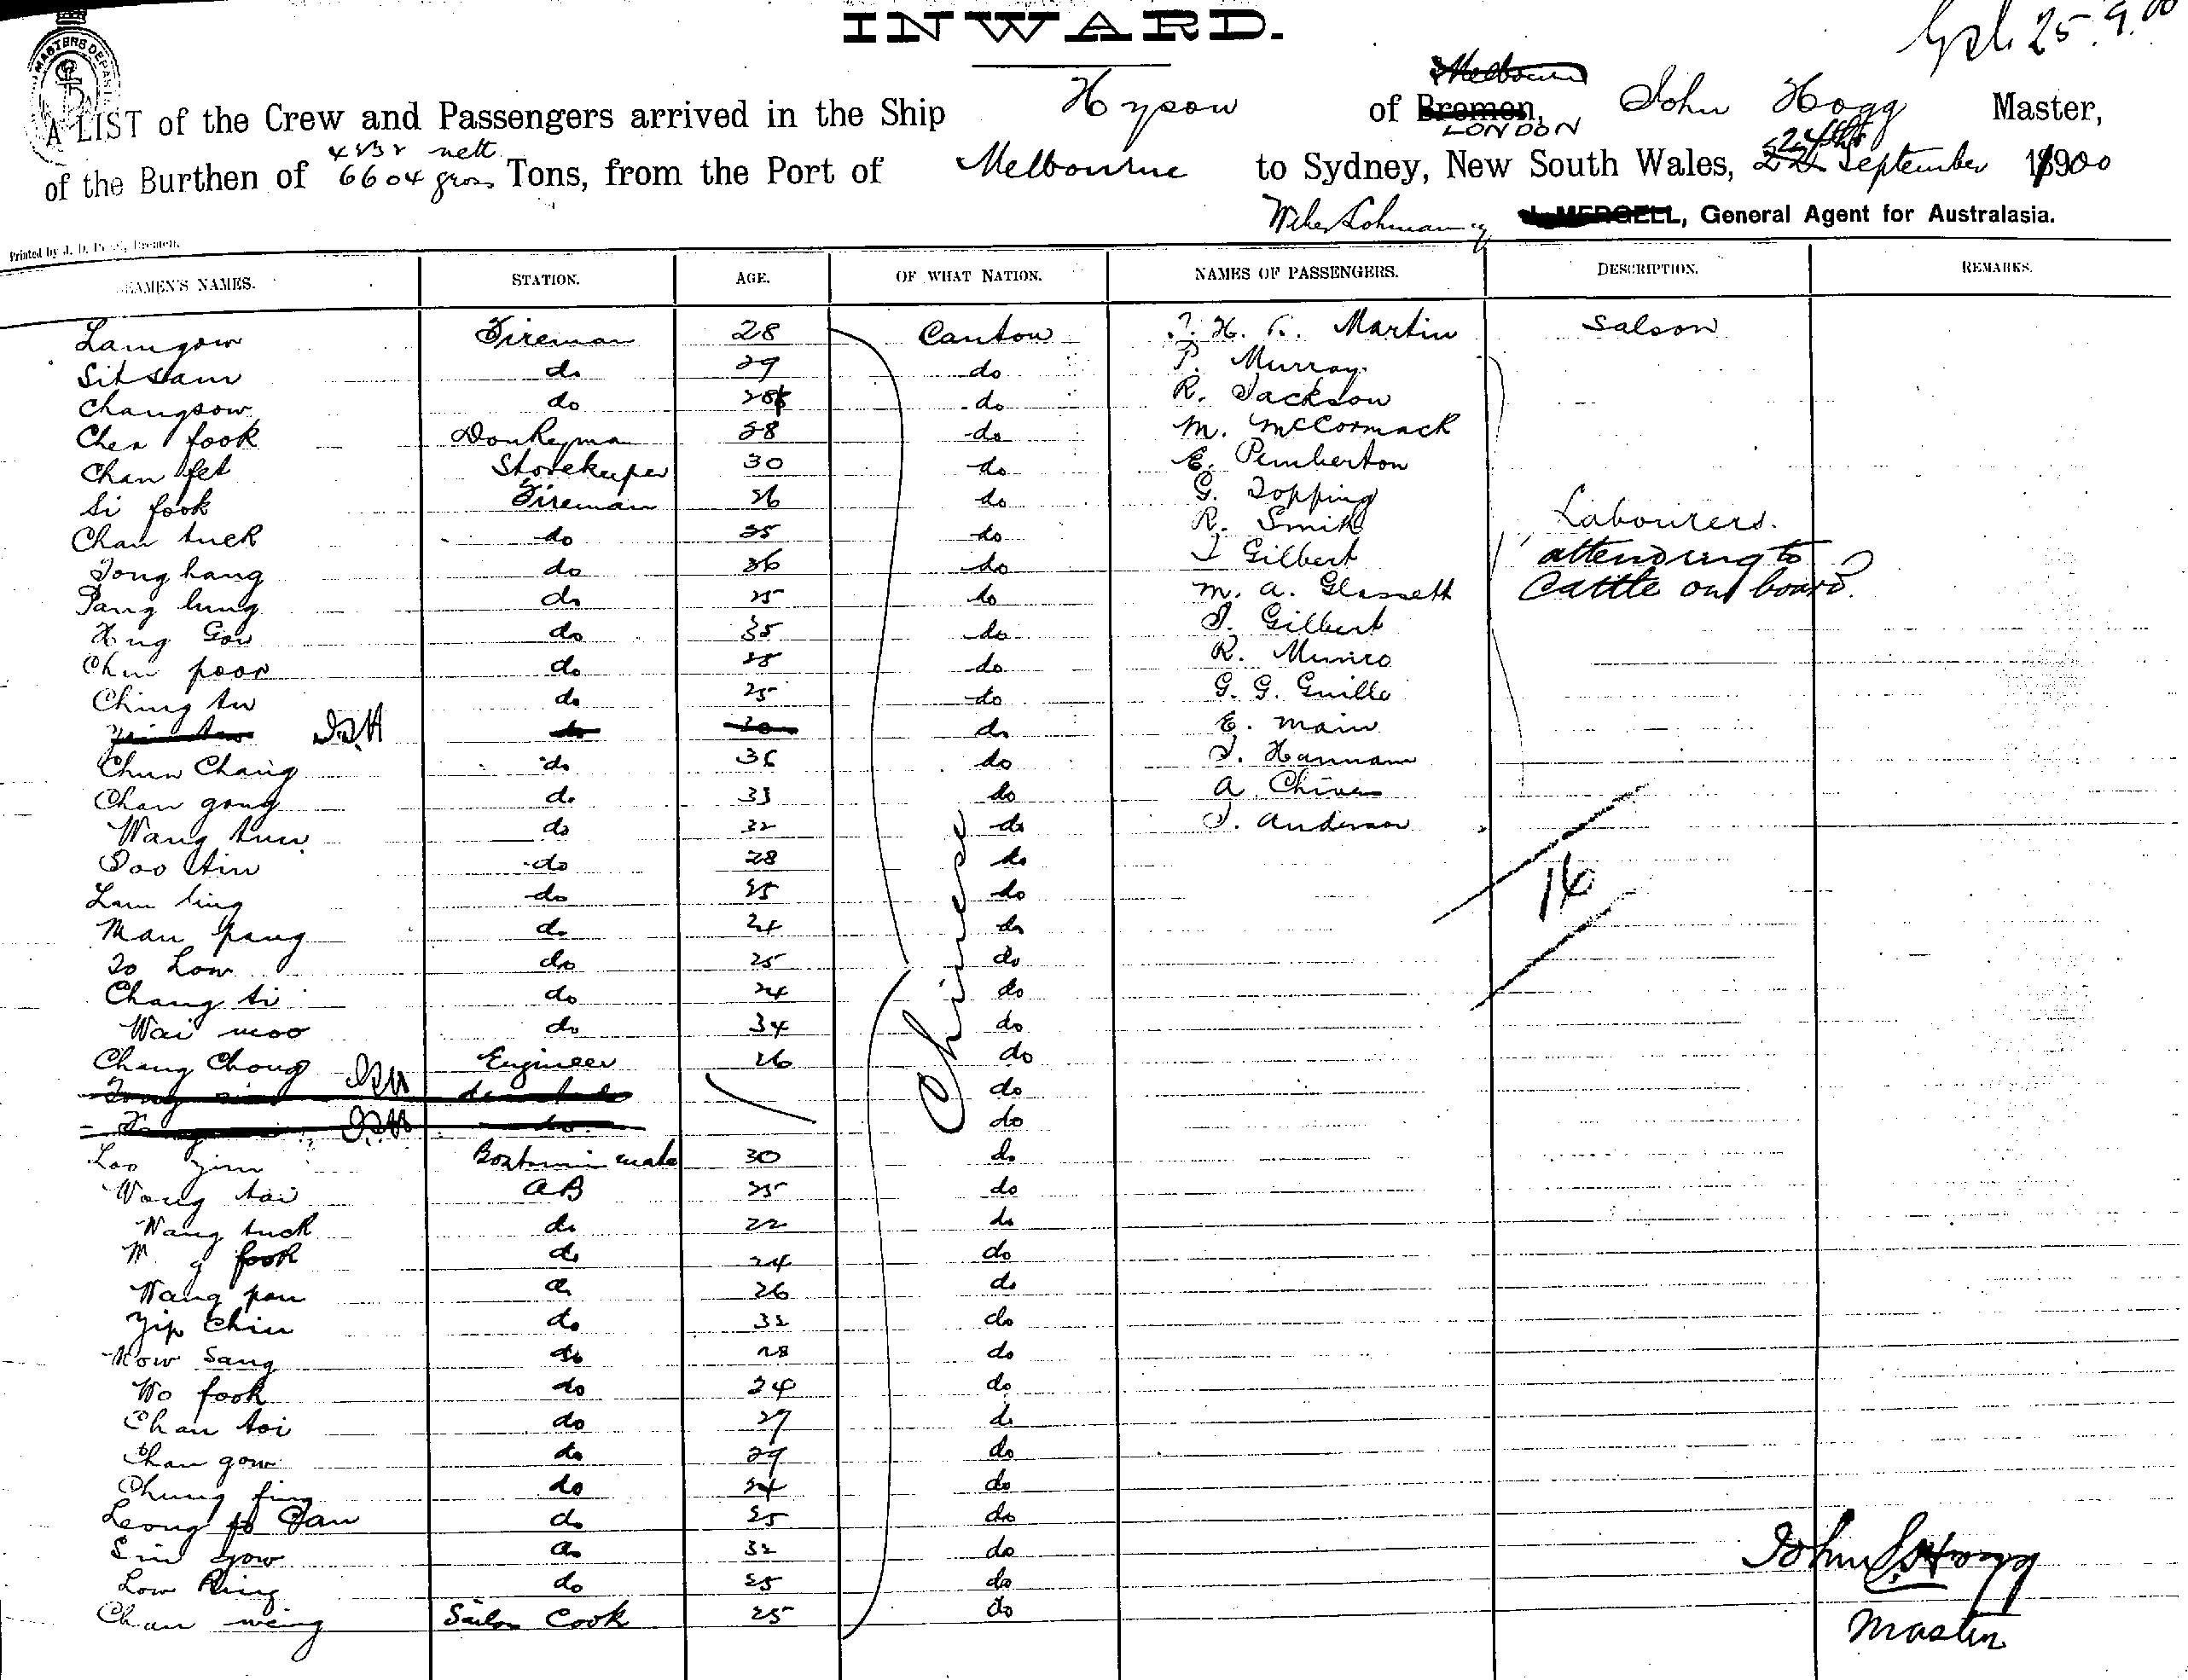 INWARD.
25.9.00
MASTERS DEPART
Melbourne
A LIST of the Crew and Passengers arrived in the Ship Hyson of Bremen, LONDON John Hogg Master,
nett
of the Burthen of 6604 gross Tons, from the Port of Melbourne to Sydney, New South Wales, 24th September 1900
MERGELL, General Agent for Australasia.
Printed by J. D. Bremen.
SEAMEN'S NAMES. STATION. AGE. OF WHAT NATION. NAMES OF PASSENGERS. DESCRIPTION. REMARKS.
Lamgow Fireman 28 Canton Martin Saloon
Sitsam do 29 do P. Murray
Changsow do do R. Jackson
Chea fook Donkeyman 38 do M. McCormack
Chan fet Storekeeper 30 do E. Pemberton
Si fook Fireman 26 do G. Topping
Chan tuck do 35 do R. Smith Labourers.
Tong hang do 36 do J Gilbert attending to
Pang lung do 25 do M. A. Glassett Cattle on board.
Gow do 35 do J. Gilbert
poor do 28 do R. Munro
Ching tu do 25 do G. G. Guille
do do E. Main
Chun Chang do 36 do J. Hannam
Chan gong do 33 do A. Chivers
Wang tun do 32 do J. Anderson
Too tin do 28 do
Lam ling do 25 do 16
Man pang do 24 do
To Low do 25 do
Chang ti do 24 do
Wai moo do 34 do
Chang Chong Engineer 26 do
Chinese
do
do
Loo yim mate 30 do
Wong tai AB 25 do
Wang tuck do 22 do
fook do 24 do
Wang pan do 26 do
Yip Chin do 32 do
Kow Sang do 28 do
Wo fook do 24 do
Chan toi do 29 do
Chan gow do 29 do
Chung fing do 24 do
Leong do 25 do
gow do 32 do
Low King do 25 do
Chan wing Sailors Cook 25 do
John Hogg
Master